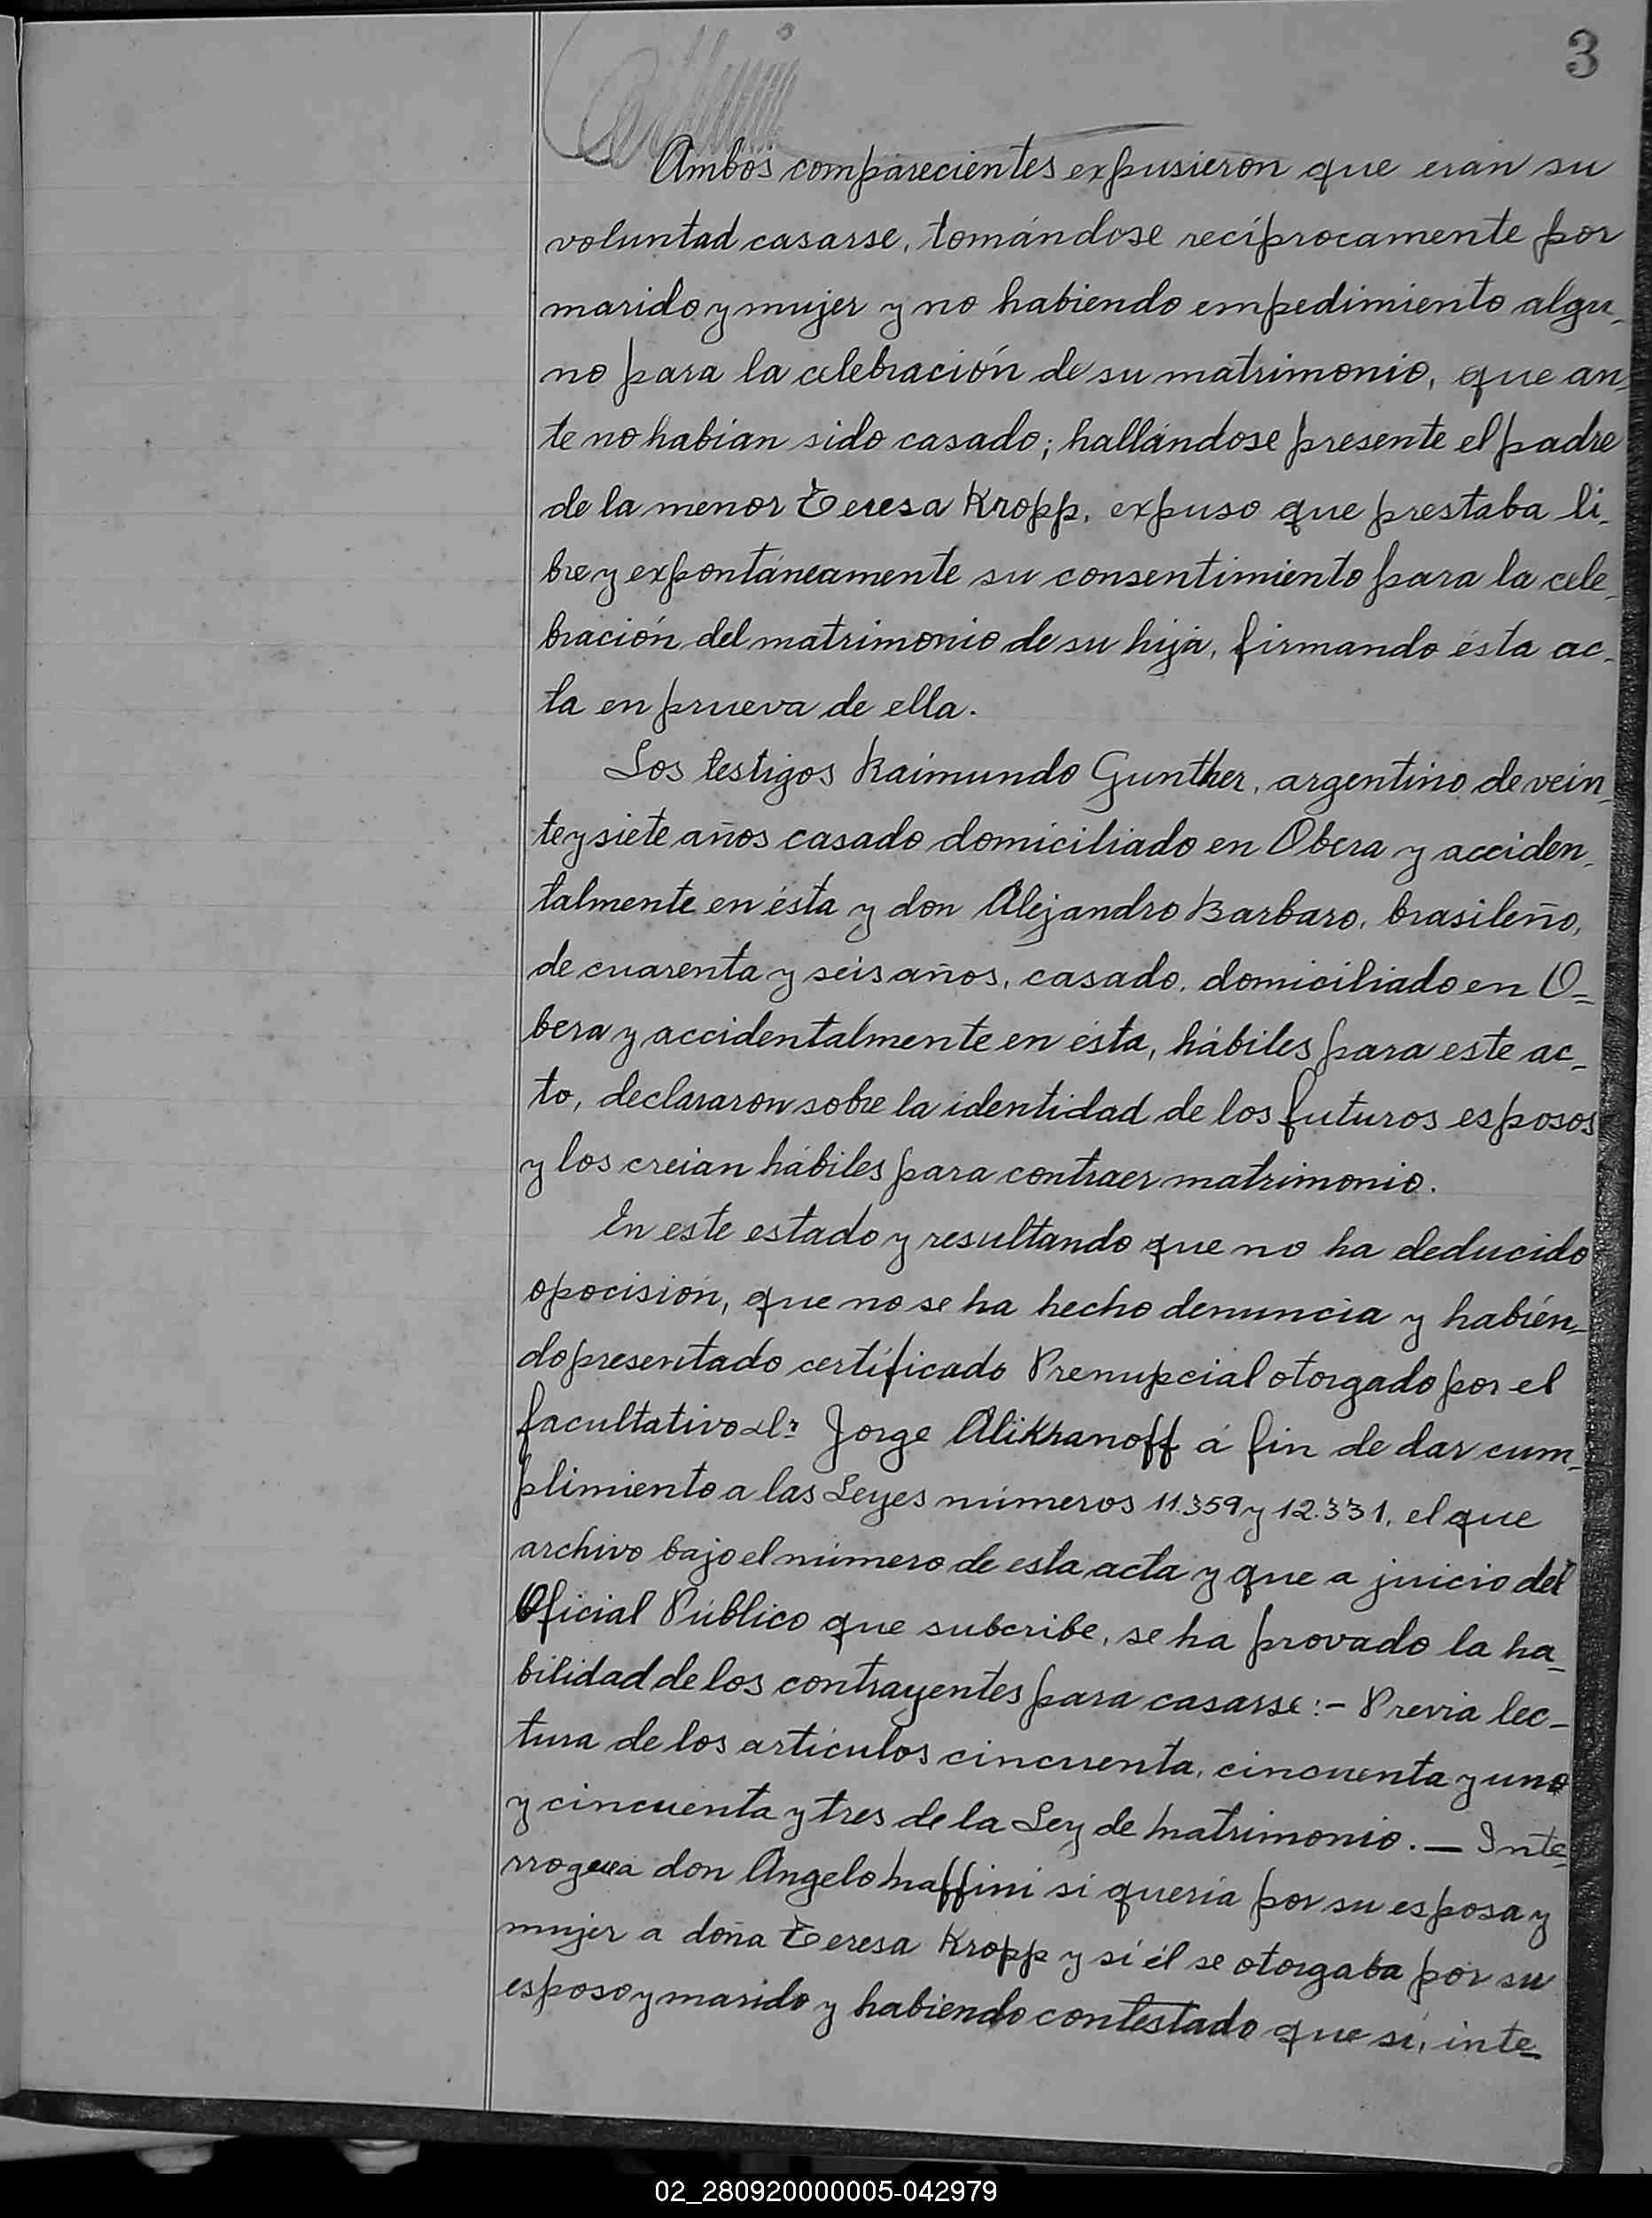 3
Ambos comparecientes expusieron que eran su
voluntad casarse, tomándose recíprocamente por
marido y mujer y no habiendo empedimiento algu-
no para la celebración de su matrimonio, que an-
te no habían sido casado; hallándose presente el padre
de la menor Teresa Kropp, expuso que prestaba li-
bre y expontáneamente su consentimiento para la cele-
bración del matrimonio de su hija, firmando ésta ac-
ta en prueva de ella.
Los testigos Raimundo Gunther, argentino de vein-
te y siete años casado domiciliado en Obera y acciden-
talmente en ésta y don Alejandro Barbaro, brasileño,
de cuarenta y seis años, casado, domiciliado en O=
bera y accidentalmente en ésta, hábiles para este ac-
to, declararon sobre la identidad de los futuros esposos
y los creían hábiles para contraer matrimonio.
En este estado y resultando que no ha deducido
opocisión, que no se ha hecho denuncia y habién-
do presentado certificado Prenupcial otorgado por el
facultativo dr Jorge Alikhanoff á fin de dar cum-
plimiento a las Leyes números 11.359 y 12.331, el que
archivo bajo el número de esta acta y que a juicio del
Oficial Público que subcribe, se ha provado la ha-
bilidad de los contrayentes para casarse:- Previa lec-
tura de los artículos cincuenta, cincuenta y uno
y cincuenta y tres de la Ley de Matrimonio. — Inte-
don Angelo Maffini si quería por su esposa y
mujer a doña Teresa Kropp y sí él se otorgaba por su
esposo y marido y habiendo contestado que sí, inte-
02_280920000005-042979